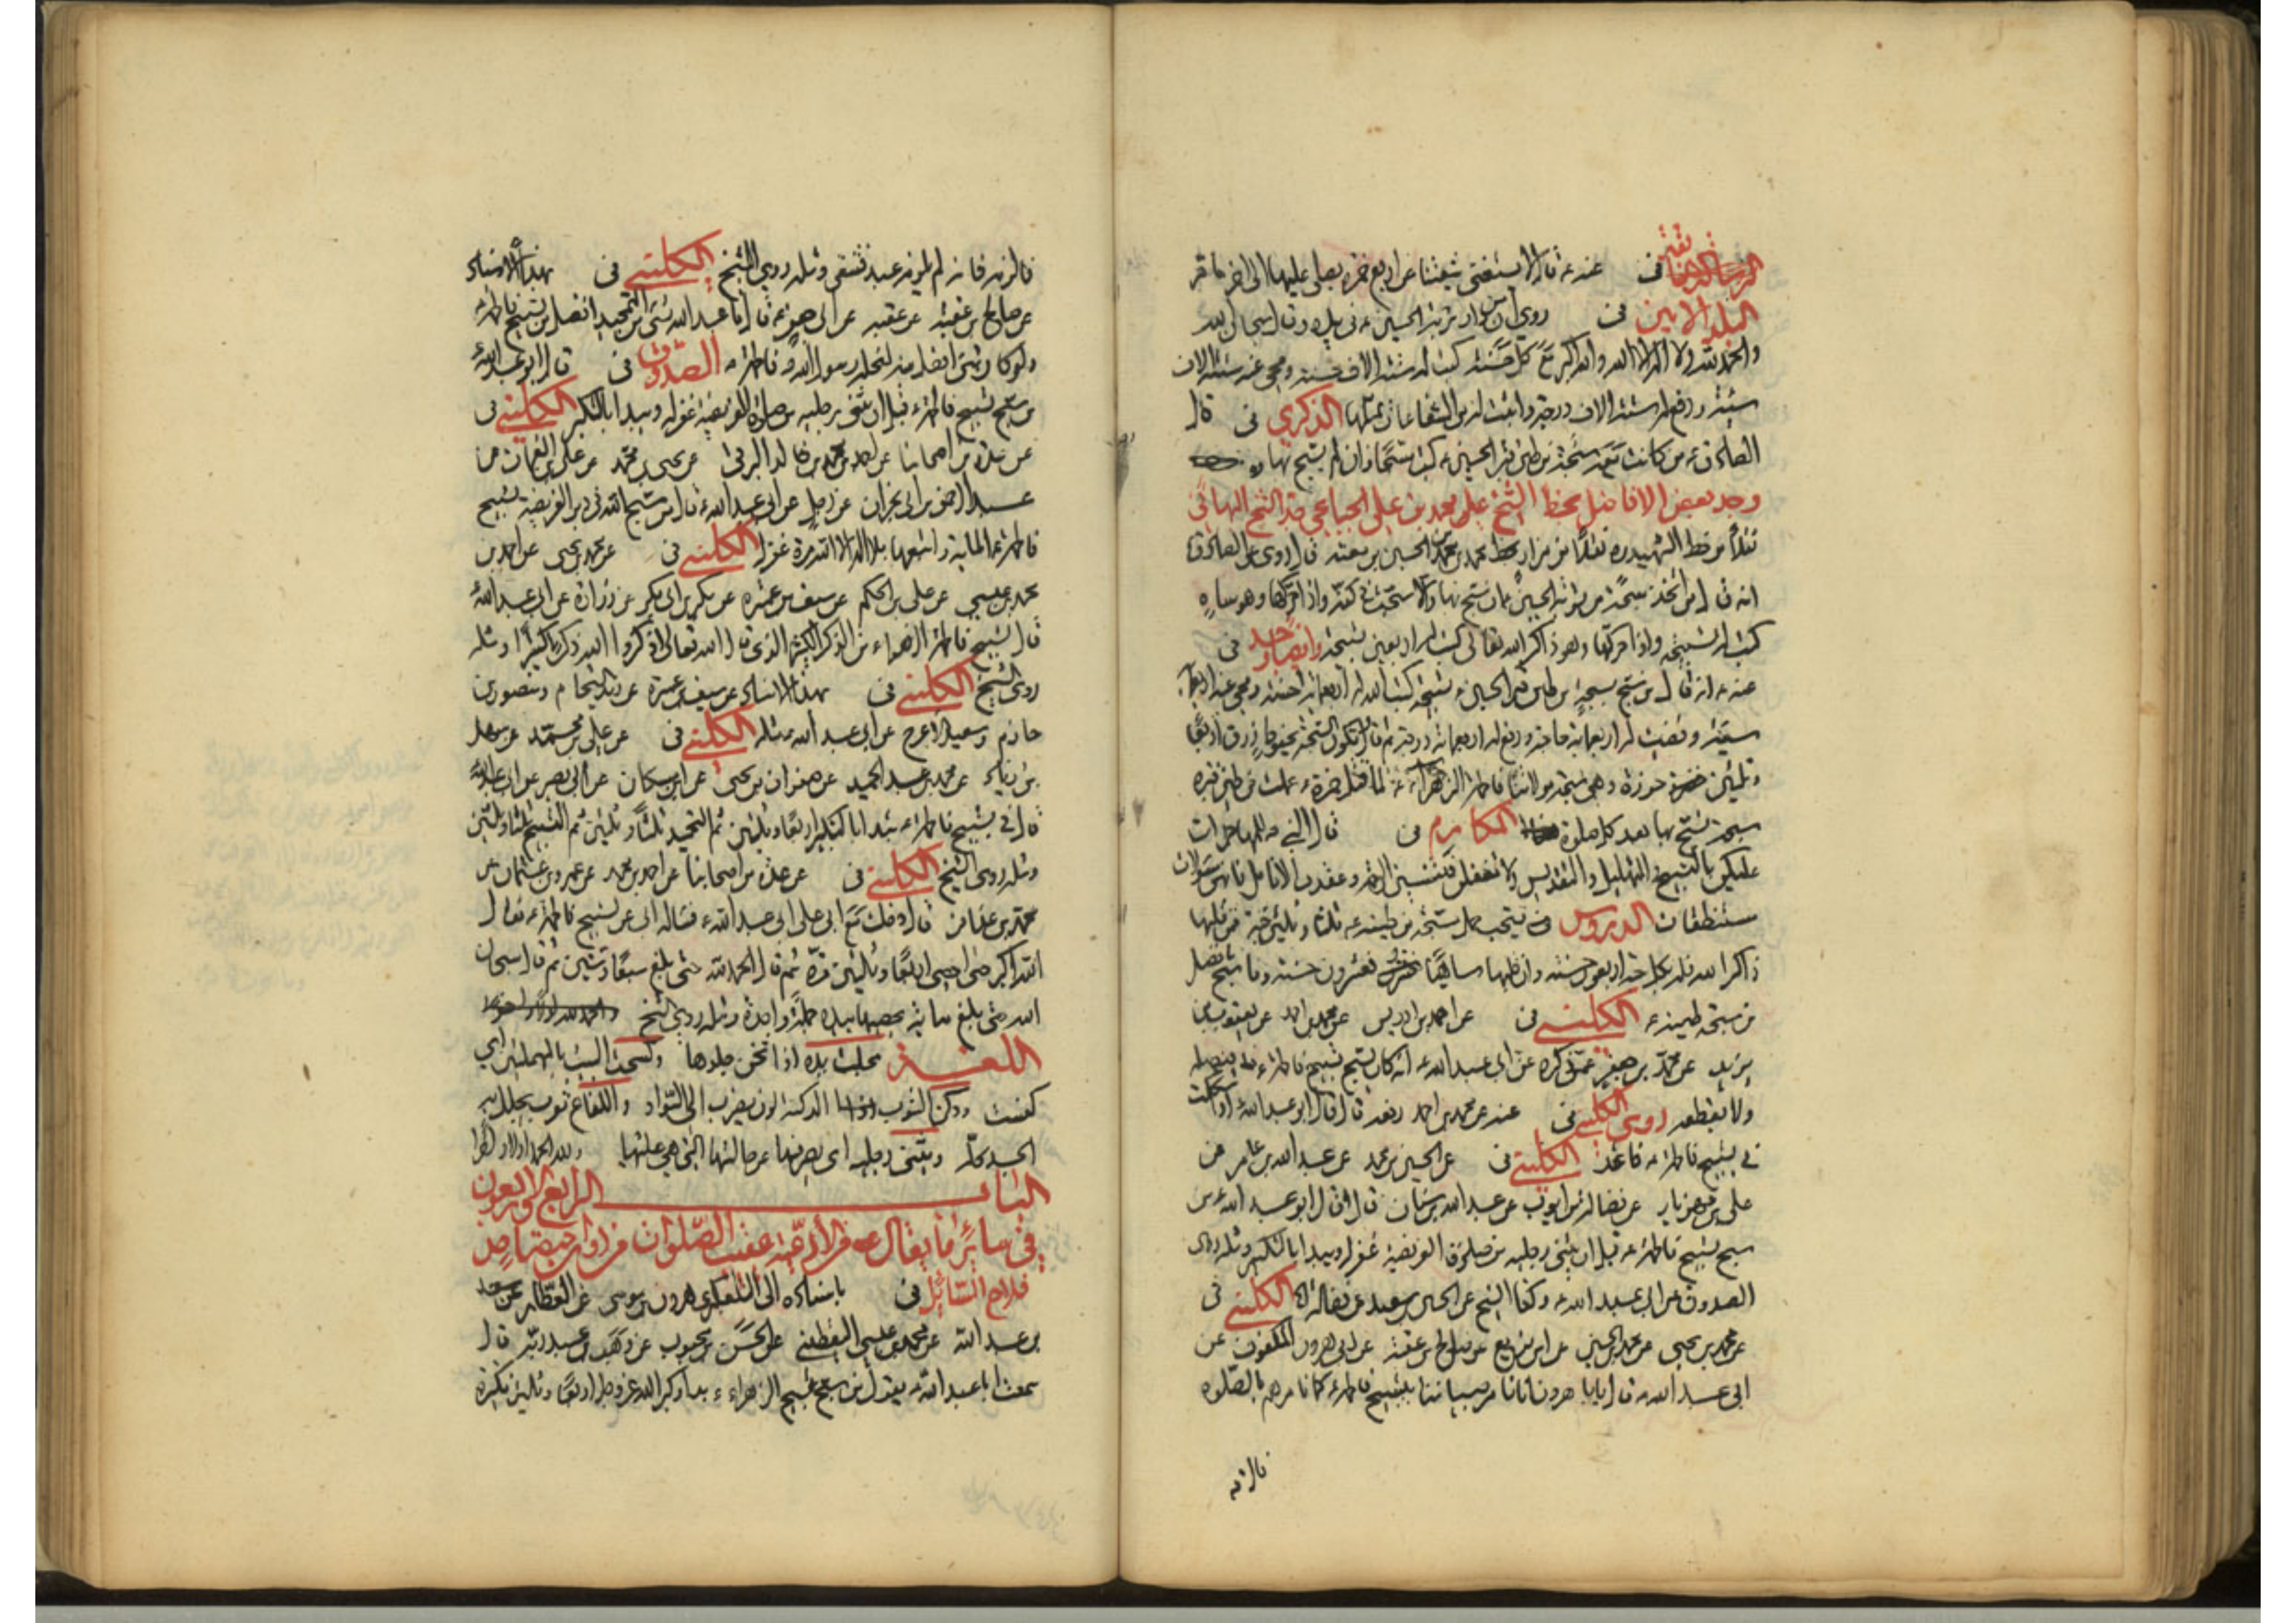 في عنه ع قال لا يستغني شيعتنا عن اربع خمرة يصلي عليها الى اخر ما مر
البلد الامين في روي ان من ادار تربة الحسين ع في يده وقال سبحان الله
والحمد لله ولا اله الا الله والله اكبر مع كل حبة كتب له ستة الاف حسنة ومحي عنه ستة الاف
سيئة ورفع له ستة الاف درجة واثبت له من الشفاعات بمثلها الذكرى في قال
الصادق ع من كانت معه سبحة من طين قبر الحسين ع كتب مسبحا وان لم يسبح بها
وجد بعض الافاضل بخط الشيخ علي محمد بن علي الجباعي جد الشيخ البهائي
نقلا من خط الشهيد ره نقلا من مزار بخط محمد بن محمد بن الحسين بن معية قال روي عن الصادق ع
انه قال من اتخذ سبحة من تربة الحسين ع ان سبح بها والا سبحت في كفه واذا حركها وهو ساه
كتب له تسبيحة واذا حركها وهو ذاكر الله تعالى كتب له اربعين تسبيحة وايضا وجد في
عنه ع انه قال من سبح بسبحة من طين قبر الحسين ع تسبيحة كتب الله له اربعمائة حسنة ومحي عنه اربعمائة
سيئة وقضيت له اربعمائة حاجة ورفع له اربعمائة درجة ثم قال وتكون السبحة بخيوط زرق اربعا
وثلثين خرزة وهي سبحة مولاتنا فاطمة الزهراء ع لما قتل حمزة ع عملت من طين قبره
سبحة تسبح بها بعد كل صلوة المكارم في قال النبي ص للمهاجرات
عليكن بالتسبيح والتهليل والتقديس ولا تغفلن فتنسين الرحمة وعقدن بالانامل فانهن مسؤلات
مستنطقات الدروس في يستحب حمل سبحة من طينه ع ثلثا وثلثين حبة فمن قلبها
ذاكرا الله فله بكل حبة اربعون حسنة وان قلبها ساهيا فعشرون حسنة وما سبح بافضل
من سبحة طينه ع الكليني في عن احمد بن ادريس عن محمد بن احمد عن يعقوب بن
يزيد عن محمد بن جعفر عمن ذكره عن ابي عبد الله ع انه كان يسبح تسبيح فاطمة ع فيصله
ولا يقطعه روى الكليني في عنه عن محمد بن احمد رفعه قال قال ابو عبد الله ع اذا شككت
في تسبيح فاطمة ع فاعد الكليني في عن الحسين بن محمد عن عبد الله بن عامر عن
علي بن مهزيار عن فضالة بن ايوب عن عبد الله بن سنان قال قال ابو عبد الله ع من
سبح تسبيح فاطمة ع قبل ان يثني رجليه من صلوة الفريضة غفر له ويبدا بالتكبير ومثله روى
الصدوق عن ابي عبد الله ع وكذا الشيخ عن الحسين بن سعيد عن فضالة الكليني في
عن محمد بن يحيى عن محمد بن الحسين عن ابن بزيع عن صالح بن عقبة عن ابي هرون المكفوف عن
ابي عبد الله ع قال يا ابا هرون انا نامر صبياننا بتسبيح فاطمة ع كما نامرهم بالصلوة
فالزمه
فالزمه فانه لم يلزمه عبد فشقي ومثله روى الشيخ الكليني في بهذا الاسناد
عن صالح بن عقبة عن عقبة عن ابي جعفر ع قال ما عبد الله بشئ من التمجيد افضل من تسبيح فاطمة ع
ولو كان شئ افضل منه لنحله رسول الله ص فاطمة ع الصدوق في قال ابو عبد الله ع
من سبح تسبيح فاطمة ع قبل ان يثني رجليه من صلوة الفريضة غفر له ويبدا بالتكبير الكليني في
عن عدة من اصحابنا عن احمد بن محمد بن خالد البرقي عن يحيى بن محمد عن علي بن النعمان عن
عبد الرحمن بن ابي نجران عن رجل عن ابي عبد الله ع قال من سبح الله في دبر الفريضة تسبيح
فاطمة ع المائة واتبعها بلا اله الا الله مرة غفر له الكليني في عن محمد بن يحيى عن احمد بن
محمد بن عيسى عن علي بن الحكم عن سيف بن عميرة عن بكر بن ابي بكر عن زرارة عن ابي عبد الله ع
قال تسبيح فاطمة الزهراء من الذكر الكثير الذي قال الله تعالى اذكروا الله ذكرا كثيرا ومثله
روى الشيخ الكليني في بهذا الاسناد عن سيف بن عميرة عن الشحام ومنصور بن
حازم وسعيد الاعرج عن ابي عبد الله ع مثله الكليني في عن علي بن محمد عن سهل
بن زياد عن محمد بن عبد الحميد عن صفوان بن يحيى عن ابن مسكان عن ابي بصير عن ابي عبد الله ع
قال في تسبيح فاطمة ع تبدا بالتكبير اربعا وثلثين ثم التحميد ثلثا وثلثين ثم التسبيح ثلثا وثلثين
ومثله روى الشيخ الكليني في عن عدة من اصحابنا عن احمد بن محمد عن عمرو بن عثمان عن
محمد بن عذافر قال دخلت مع ابي على ابي عبد الله ع فساله ابي عن تسبيح فاطمة ع فقال
الله اكبر حتى احصى اربعا وثلثين مرة ثم قال الحمد لله حتى بلغ سبعا وستين ثم قال سبحان
الله حتى بلغ مائة يحصيها بيده جملة واحدة ومثله روى الشيخ
اللغة مجلت يده اذا ثخن جلدها وكسحت البيت بالمهملتين اي
كنست ودكن الثوب الدكنة لون يضرب الى السواد واللفاع ثوب يجلل به
الجسد كله ويثني رجليه اى يصرفهما عن حالتهما التي هي عليها ولله الحمد اولا واخرا
الباب الرابع والاربعون
في سائر ما يقال من الادعية عقيب الصلوات
فلاح السائل في باسناده الى التلعكبري هرون بن موسى عن العطار عن سعد
بن عبد الله عن محمد بن عيسى اليقطيني عن الحسن بن محبوب عن وهب بن عبد ربه قال
سمعت ابا عبد الله ع يقول من سبح تسبيح الزهراء ع بدا وكبر الله عز وجل اربعا وثلثين تكبيرة